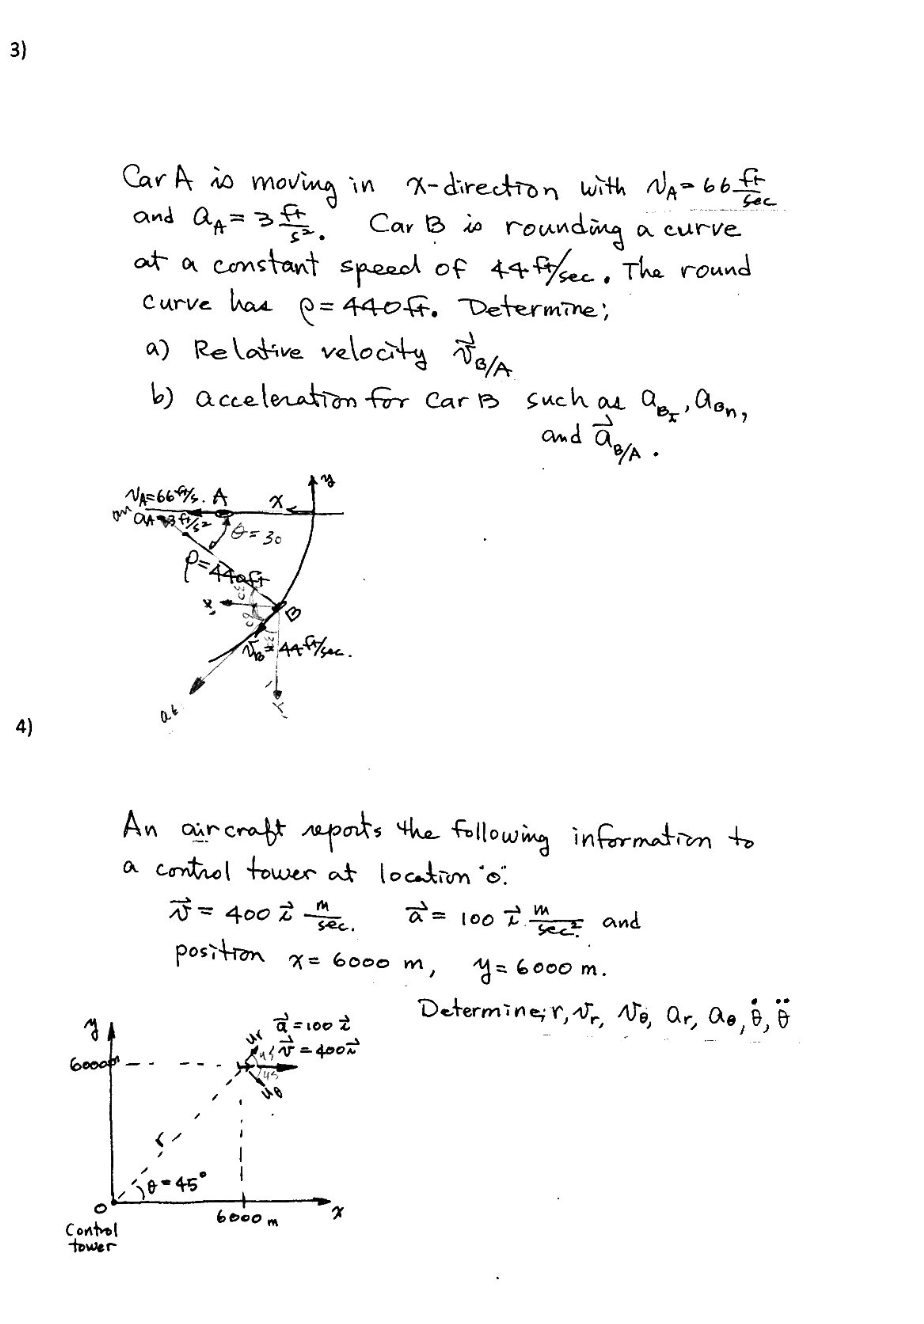 3)
Car A is moving in x-direction with v_A = 66 ft/sec
and a_A = 3 ft/s². Car B is rounding a curve
at a constant speed of 44 ft/sec. The round
curve has ρ = 440 ft. Determine;
a) Relative velocity v⃗_B/A
b) acceleration for Car B such as a_Bt, a_Bn,
and a⃗_B/A.
y
v_A=66 ft/s. A x
an a_A=3 ft/s² θ=30
ρ=440ft
x B
v_B=44 ft/sec.
at y
4)
An aircraft reports the following information to
a control tower at location "o":
v⃗ = 400 i⃗ m/sec. a⃗ = 100 i⃗ m/sec². and
position x = 6000 m, y = 6000 m.
Determine; r, vr, vθ, ar, aθ, θ̇, θ̈
y ur a⃗ = 100 i⃗
6000m 45 v⃗ = 400 i⃗
45
uθ
r
θ = 45°
O 6000 m x
Control
tower